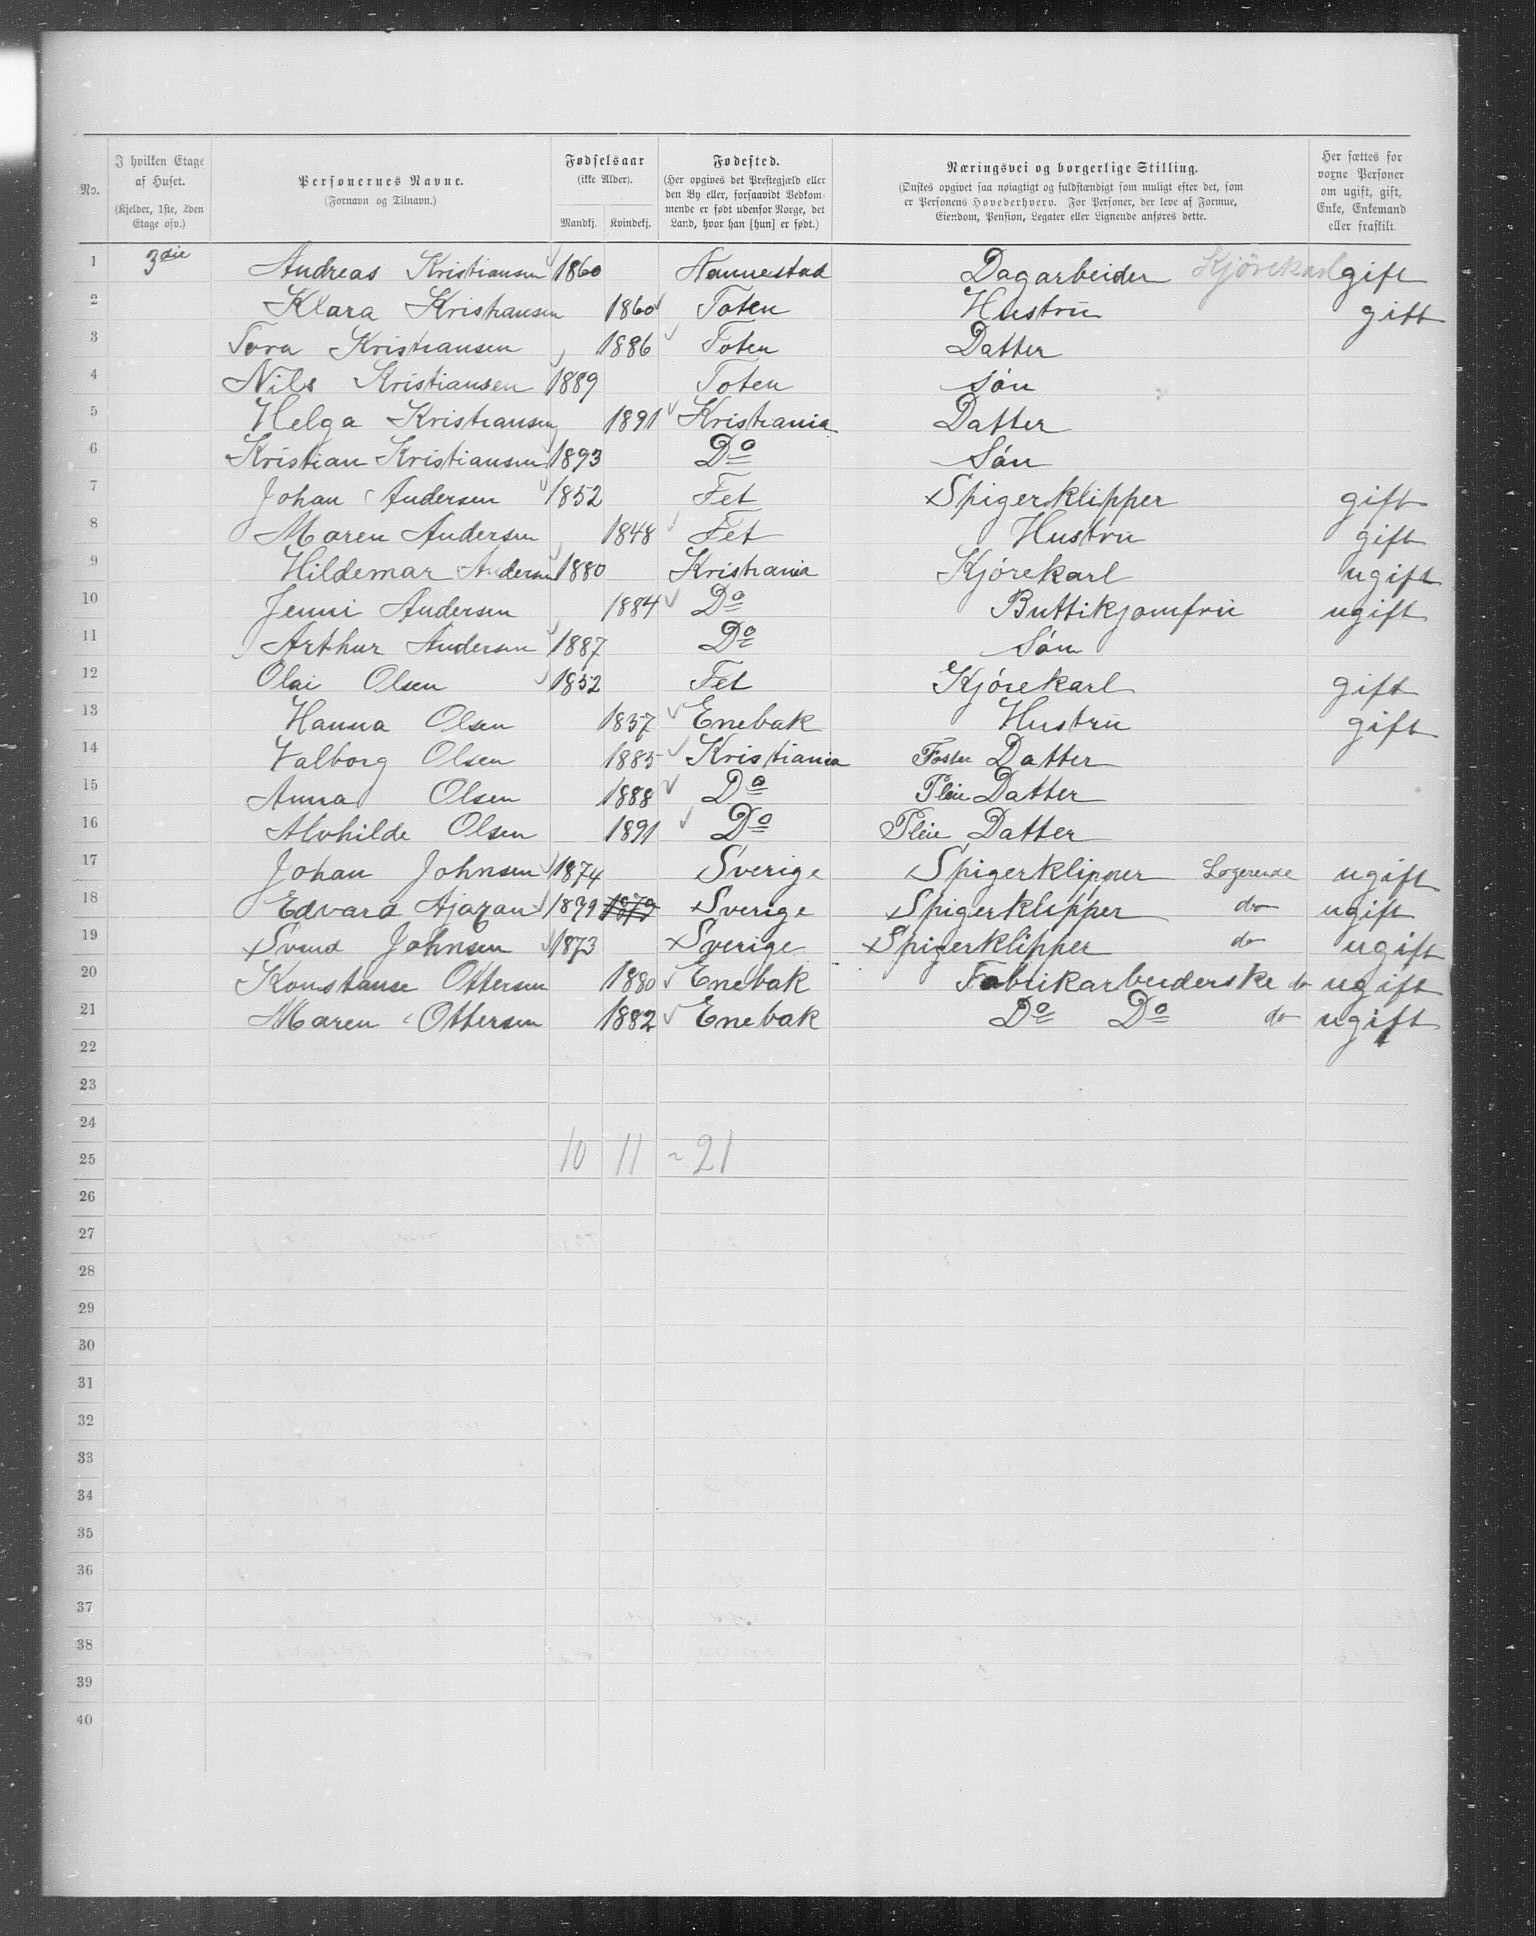 No.
I hvilken Etage af Huset.
(Kjelder, 1ste, 2den Etage osv.)
Personernes Navne.
(Fornavn og Tilnavn.)
Fødselsaar
(ikke Alder).
Mandkj. Kvindekj.
Fødested.
(Her opgives det Prestegjæld eller den By eller, forsaavidt Vedkommende er født udenfor Norge, det Land, hvor han [hun] er født.)
Næringsvei og borgerlige Stilling.
(Ønskes opgivet saa nøiagtigt og fuldstændigt som muligt efter det, som er Personens Hovederhverv. For Personer, der leve af Formue, Eiendom, Pension, Legater eller Lignende anføres dette.
Her sættes for voxne Personer om ugift, gift, Enke, Enkemand eller fraskilt.
1 3die Andreas Kristiansen 1860 Nannestad Dagarbeider Kjørekarl gift
2 Klara Kristiansen 1860 Toten Hustru gift
3 Tora Kristiansen 1886 Toten Datter
4 Nils Kristiansen 1889 Toten Søn
5 Helga Kristiansen 1891 Kristiania Datter
6 Kristian Kristiansen 1893 Do Søn
7 Johan Andersen 1852 Fet Spigerklipper gift
8 Maren Andersen 1848 Fet Hustru gift
9 Hildemar Andersen 1880 Kristiania Kjørekarl ugift
10 Jenni Andersen 1884 Do Buttikjomfru ugift
11 Arthur Andersen 1887 Do Søn
12 Olai Olsen 1852 Fet Kjørekarl gift
13 Hanna Olsen 1857 Enebak Hustru gift
14 Valborg Olsen 1885 Kristiania Foster Datter
15 Anna Olsen 1888 Do Pleie Datter
16 Alvhilde Olsen 1891 Do Pleie Datter
17 Johan Johnsen 1874 Sverige Spigerklipper Logerende ugift
18 Edvard 1879 1879 Sverige Spigerklipper do ugift
19 Svend Johnsen 1873 Sverige Spigerklipper do ugift
20 Konstanse Ottersen 1880 Enebak Fabrikarbeiderske do ugift
21 Maren Ottersen 1882 Enebak Do Do do ugift
22
23
24
25 10 11 ~ 21
26
27
28
29
30
31
32
33
34
35
36
37
38
39
40